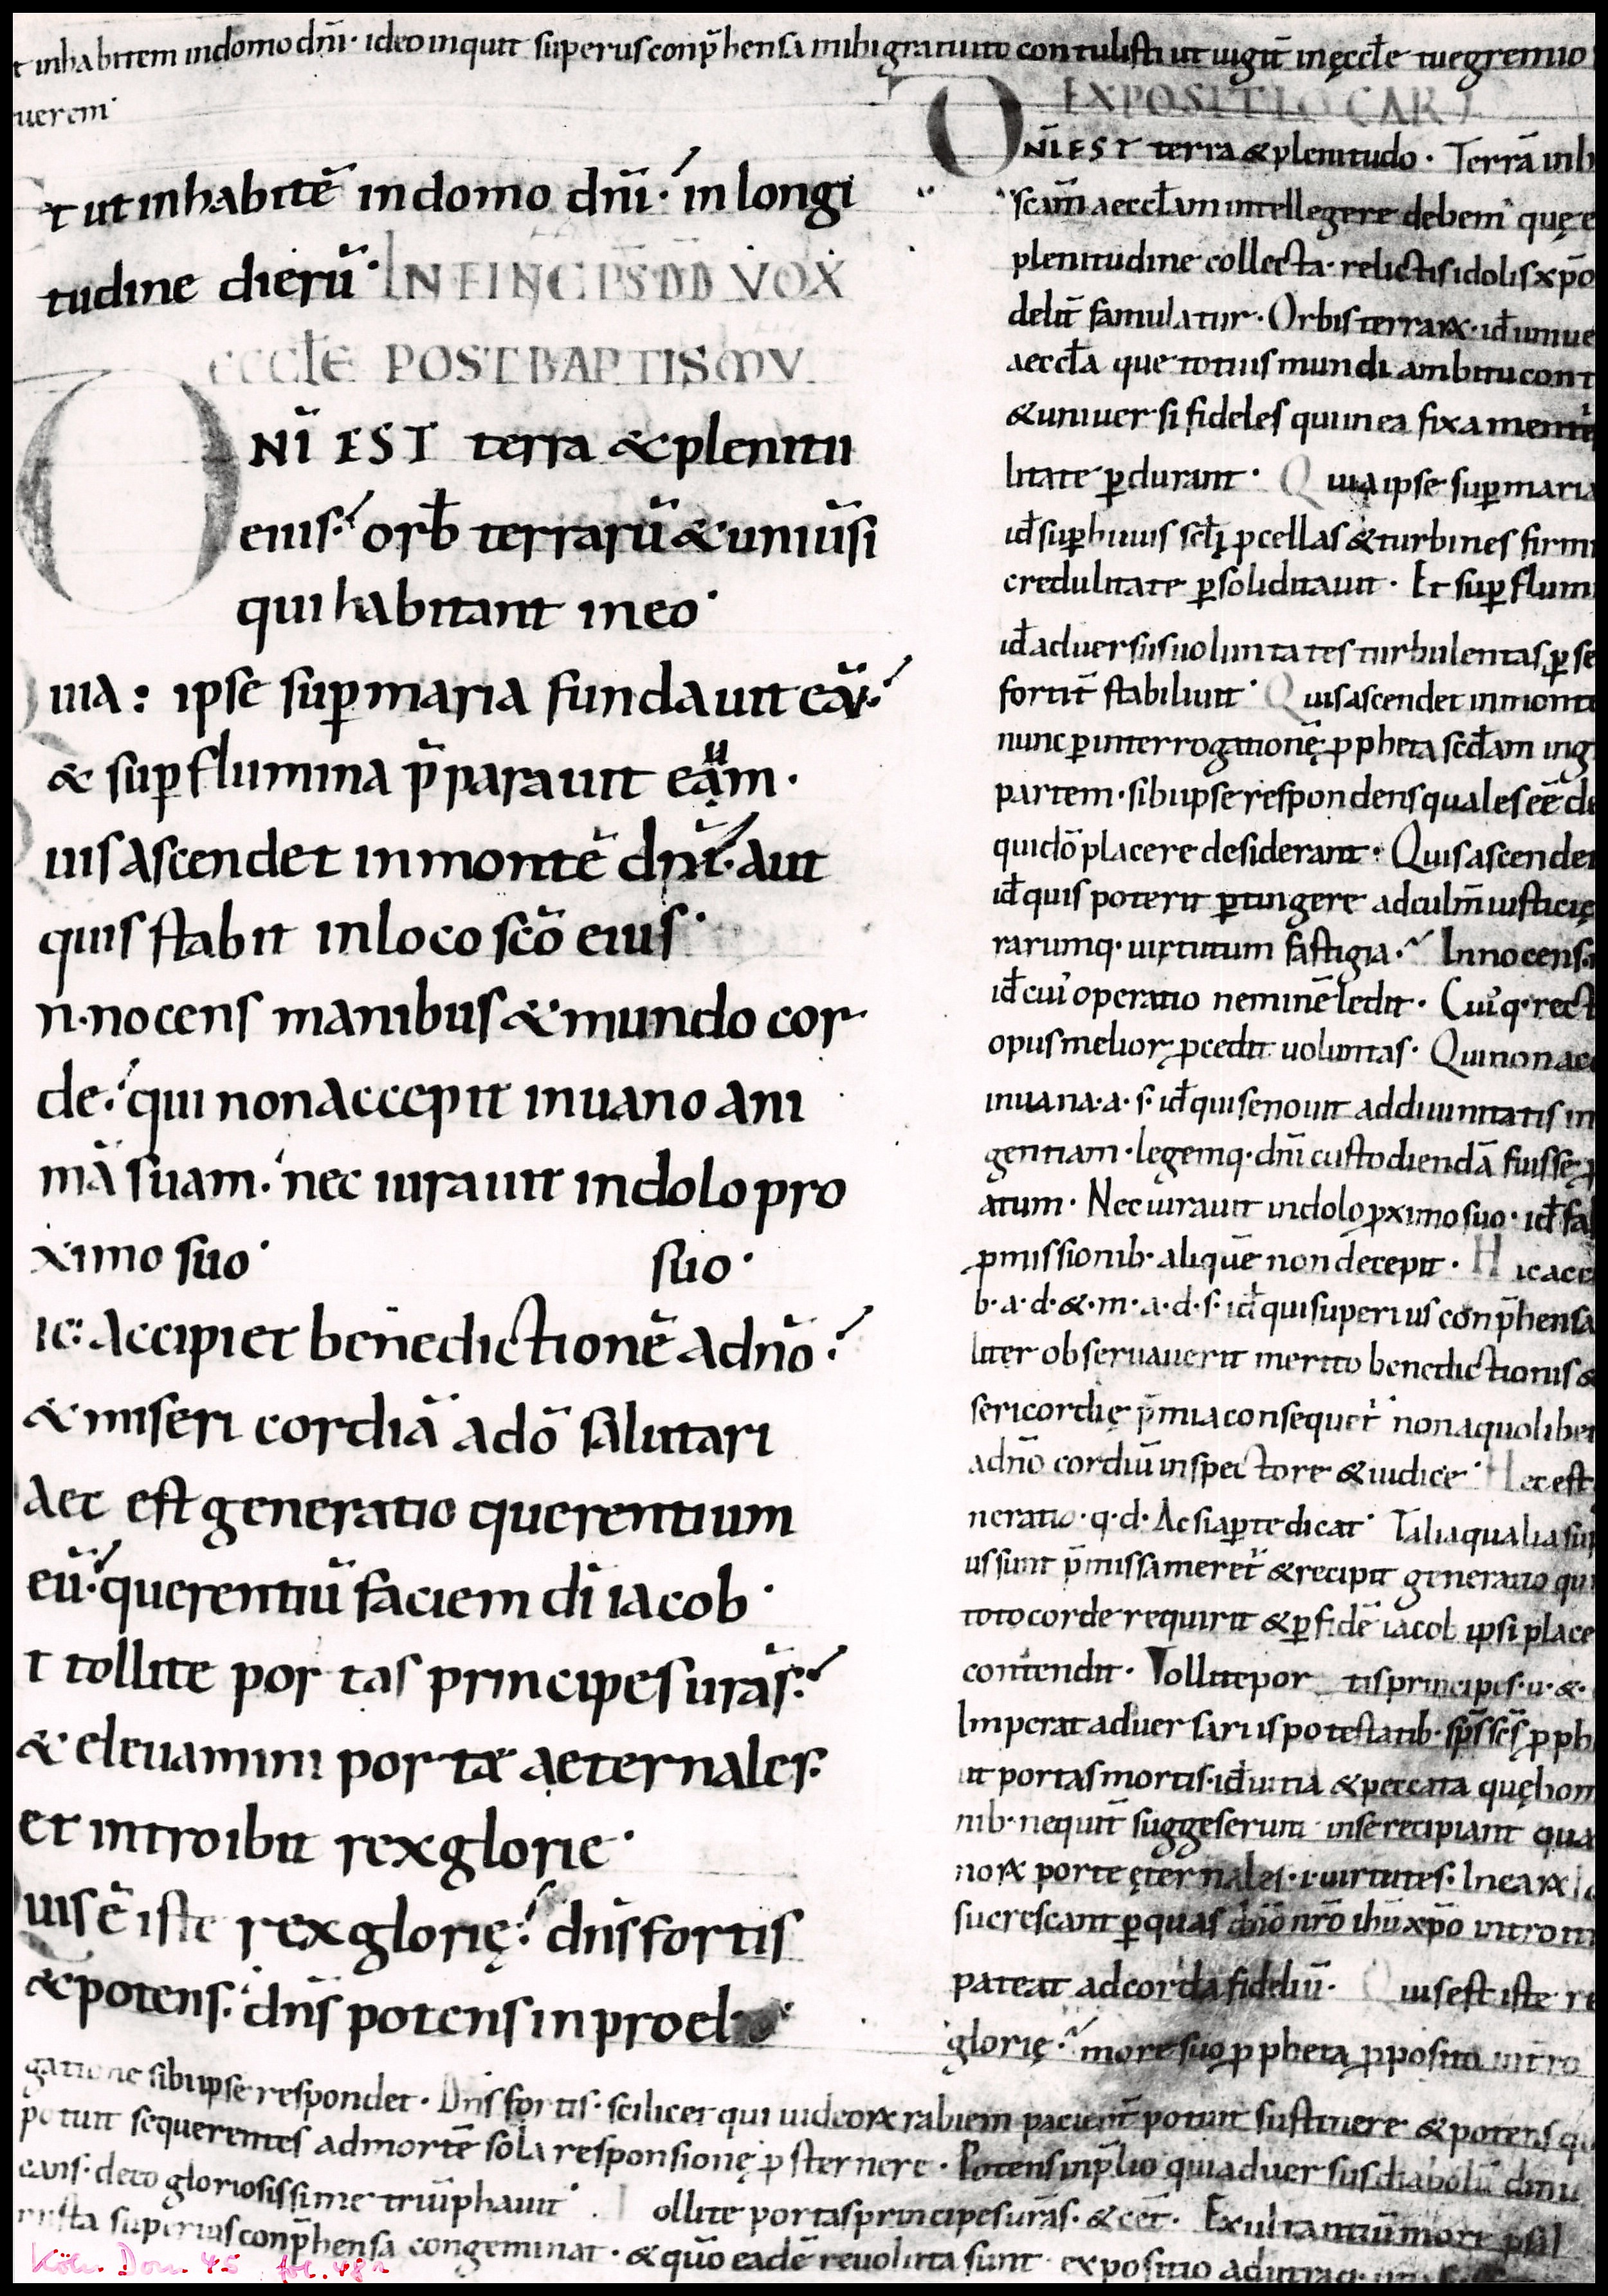 t inhabitem in domo dñi · ideo inquit superius conp̄hensa mihi gratuito contulisti ut uigit̄ in ęccłe tue gremio
uerem̛
t ut inhabitē in domo dñi · in longi
tudine dierū · IN FINC PS DD VOX
eccłe POST BAPTISMV
DNĪ EST terra & plenitu
eius · orb̄ terrarū & uniu̅si
qui habitant in eo ·
uia : ipse sup̲ maria fundauit eā ·
& sup̲ flumina p̄parauit eam ·
uis ascendet in montē dñi · aut
quis stabit in loco scō eius ·
n·nocens manibus & mundo cor
de · qui non accepit in uano ani
mā suam · nec iurauit in dolo pro
ximo suo · suo ·
ic : accipiet benedictionē a dño ·
& misericordiā a dō salutari
aec est generatio querentium
eū · querentiū faciem dī iacob ·
t tollite portas principes uras̄ ·
& eleuamini portæ aeternales ·
et introibit rex glorie ·
uis ē iste rex glorię · dñs fortis
& potens · dñs potens in proel
EXPOSITIO
DNĪ EST terra & plenitudo · Terrā inh
scam̄ aeccłam intellegere debem̛ quę e
plenitudine collecta · relictis idolis xp̄o
delit̄ famulatur · Orbis terrarꝝ · id̄ uniue
aeccła que totius mundi ambitu cont
& uniuersi fideles qui in ea fixa mente
litate p̲durant · Quia ipse sup̲ maria
id̄ sup̲ huius scłi p̲cellas & turbines firmi
credulitate p̲soliditauit · Et sup̲ flumi
id̄ aduersus uoluntates turbulentas p̲se
fortit̄ stabiliuit · Quis ascendet in monte
nunc p̲ interrogationę p̲pheta scd̄am ing
partem · sibi ipse respondens quales eē de
qui dō placere desiderant · Quis ascendet
id̄ quis poterit p̲tingere ad culm̄ iusticię
rarumq· uirtutum fastigia · Innocens
id̄ cui̛ operatio neminē ledit · Cui̛q· rect
opus melior p̲cedit uoluntas · Qui non acc
in uana · a · s · id̄ qui se nouit ad diuinitatis in
gentiam · legemq· dñi custodiendā fuisse
atum · Nec iurauit in dolo p̲ximo suo · id̄ fal
p̲missionib· aliquē non decepit · Hic acci
b · a · d · & · m · a · d · s · id̄ qui superius conp̄hensa
liter obseruauerit merito benedictionis &
sericordię p̄mia consequet̄ non a quolibet
a dño cordiū inspectore & iudice · Hec est
neratio · q · d · Ac si ap̲te dicat · Talia qualia su
us sunt p̄missa meret̄ & recipit generatio qui
toto corde requirit & p̲ fidē iacob ipsi place
contendit · Tollite por tis principes · u · & ·
Imperat aduersariis potestatib· sps̄ scs̄ p̲ph
ut portas mortis · id̄ uitia & peccata quę hom
nib· nequit̄ suggeserunt in se recipiant qua
norꝝ porte ęternales · i · uirtutes · In earꝝ
sucrescant p̲ quas dño nr̄o ihū xp̄o introit
pateat ad corda fideliū · Quis est iste re
glorię · more suo p̲pheta p̲posita intro
gatione sibi ipse respondet · Dñs fortis · scilicet qui iudeorꝝ rabiem pacient̄ potuit sustinere & potens qu
potuit sequerentes ad mortē sola responsionę p̲sternere · Potens in p̄lio qui aduersus diabolū dimi
cans · de eo gloriosissime triūphauit · Tollite portas principes uras̄ · & cet̄ · Exultantiū more psal
mista superius conp̄hensa congeminat · & quō eadē reuoluta sunt expositio
Köln. Dom. 45 fol. 48r